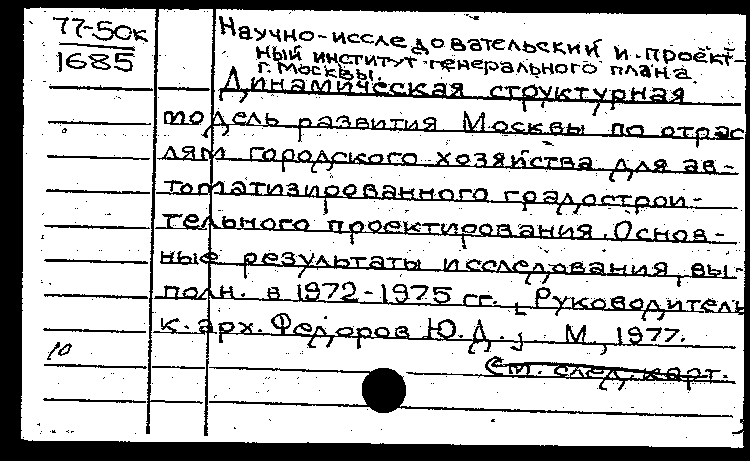 77-50к
1685
Научно-исследовательский и проект-
ный институт генерального плана
г. Москвы.
Динамическая структурная
модель развития Москвы по отрас
лям городского хозяйства для ав-
томатизированного градострои-
тельного проектирования. Основ-
ные результаты исследования, вы-
полн. в 1972-1975 гг. [Руководитель
к. арх. Федоров Ю. Д.; М., 1977.
10
См. след. карт.